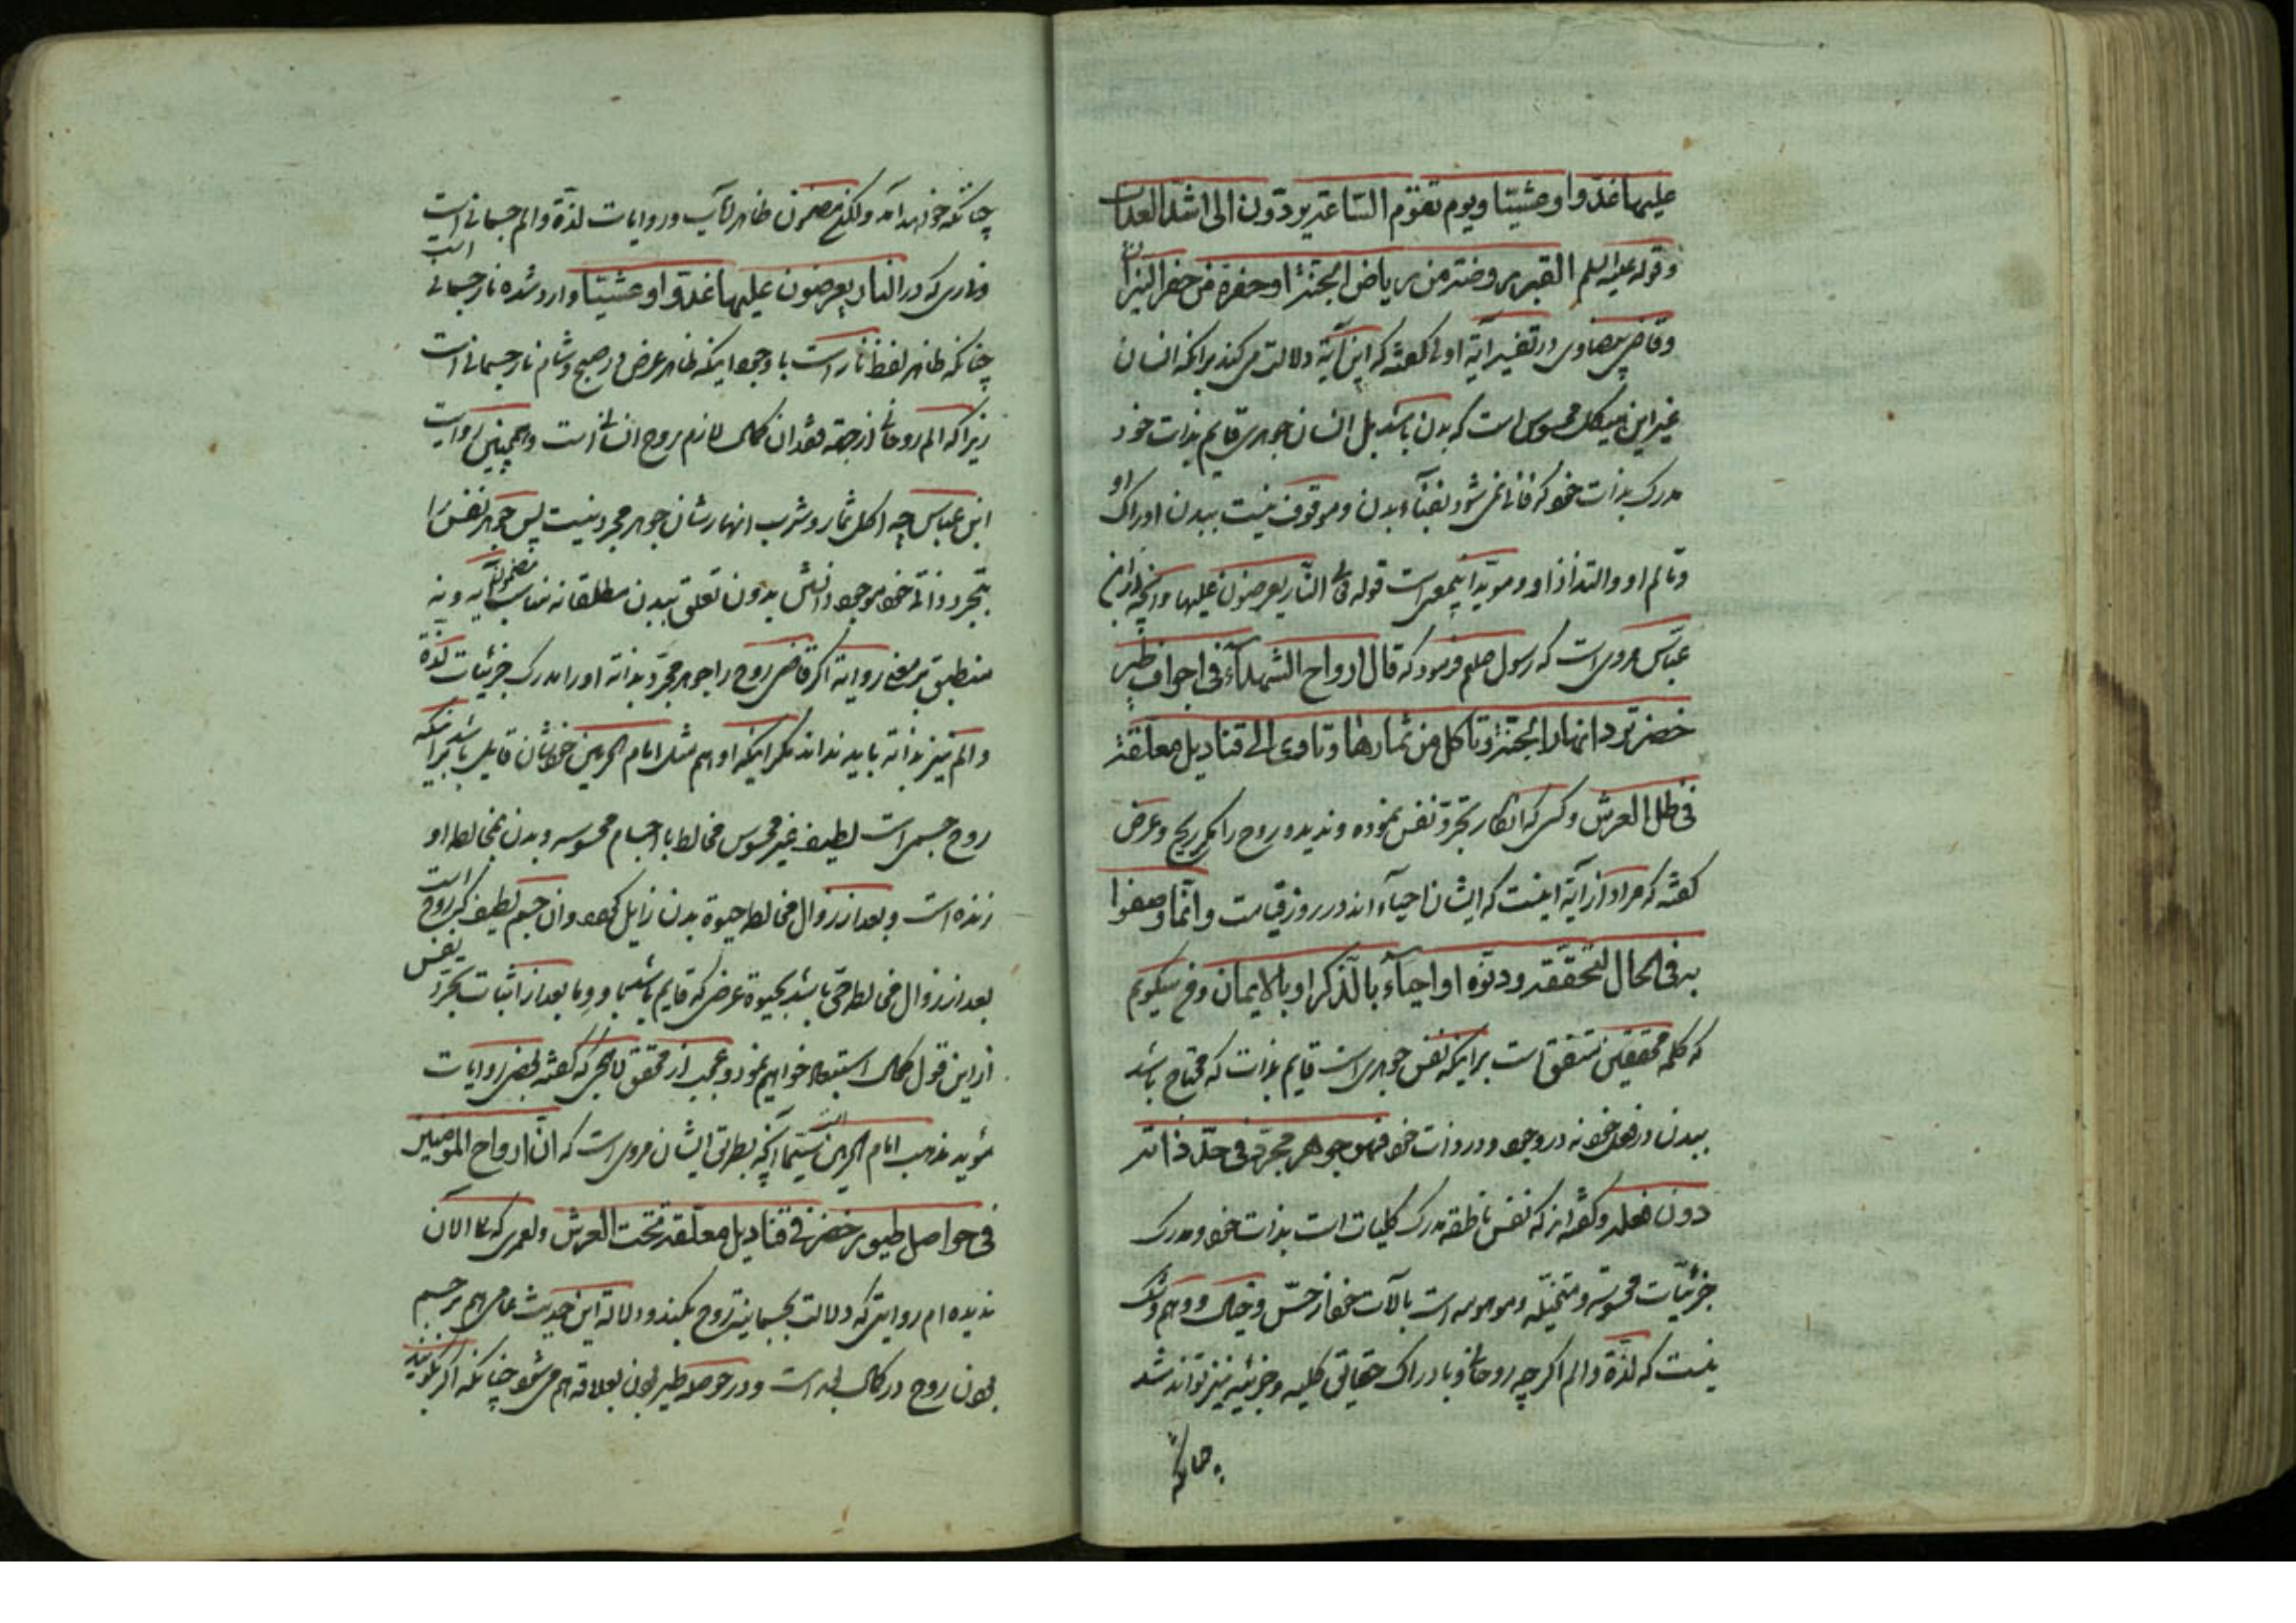 علیها غدوا و عشیّا ویوم تقوم السّاعة یردّون الی اشدّ العذاب
وقوله علیه السلم القبر روضة من ریاض الجنّة او حفرة من حفر النیران
وقاضی بیضاوی در تفسیر آیة اولی کفته که این آیة دلالت می کند برانکه انسان
غیر این هیکل محسوس است که بدن باشد بل انسان جوهری قایم بذات خود
مدرک بذات خود که فانی نمی شود بفنآء بدن و موقوف نیست ببدن ادراک او
وتالم او والتذاذ او ومویّد اینمعنی است قوله تع النّار یعرضون علیها وآنچه از ابن
عبّاس مروی است که رسول صلعم فرمود که قال ارواح الشهدآء فی اجواف طیر
خضر ترد انهار الجنّة وتاکل من ثمارها وتاوی الی قنادیل معلّقة
فی ظل العرش وکسی که انکار تجرّد نفس نموده وندیده روح را مکر ریح وعرض
کفته که مراد از آیة اینست که ایشان احیآء اند در روز قیامت وانّما وصفوا
به فی الحال لتحقّقه ودنوّه او احیآء بالذّکر او بالایمان وفح میکویم
که کلمه محققین متفق است برانکه نفس جوهری است قایم بذات که محتاج باشد
ببدن در فعل خود نه در وجود و در ذات خود فهو جوهر مجرّد فی حدّ ذاته
دون فعله وکفته اند که نفس ناطقه مدرک کلیات است بذات خود ومدرک
جزئیّات محسوسه ومتخیّله وموهومه است بآلات خود از حسّ وخیال ووهم وشک
نیست که لذّة والم اکرچه روحانی وبادراک حقایق کلیه وجزئیه نیز تواند شد
چنانکه
چنانکه خواهد آمد ولکن مضمون ظاهر کتاب وروایات لذّة والم جسمانی است
وناری که در النار یعرضون علیها غدوّا و عشیّا وارد شده نار جسمانی است
چنانکه ظاهر لفظ نار است با وجود اینکه ظاهر عرض در صبح وشام نار جسمانی است
زیرا که الم روحانی از جهة فقدان کمال لازم روح انسانی است وهمچنین روایت
ابن عباس چه اکل ثمار وشرب انهار شان جوهر مجرد نیست پس جوهر نفس را
بتجرد ذاتی خود موجود دانستن بدون تعلق ببدن مطلقا نه مناسب مضمون آیه و نه
منطبق بر معنی روایة اکر قاضی روح را جوهر مجرّد بذاته او را مدرک جزئیات لذّة
والم نیز بذاته باید نداند مکر اینکه او هم مثل امام الحرمین خودشان قایل باشد براینکه
روح جسمی است لطیف غیر محسوس مخالط با اجسام محسوسه وبدن بمخالطه او
زنده است و بعد از زوال مخالطه حیوة بدن زایل کردد وان جسم لطیف که روح است
بعد از زوال مخالطه حی باشد بحیوة عرضی که قایم باشد باو وما بعد از اثبات تجرّد نفس
از این قول کمال استبعاد خواهیم نمود وعجب از محقق لاهجی که کفته بعضی روایات
مؤید مذهب امام الحرمین است سیّما آنچه بطرق ایشان مروی است که انّ ارواح المومنین
فی حواصل طیور خضر فی قنادیل معلّقة تحت العرش ولعمری که تا الان
ندیده ام روایتی که دلالت بجسمانیت روح بکند ودلالة این حدیث عامی هم بر جسم
بودن روح در کمال بعد است ودر حوصله طیر بودن بعلاقه هم می شود چنانکه اکر بکویند